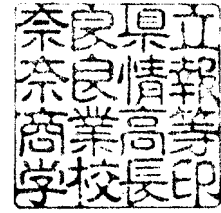 奈良県立
奈良情報
商業高等
学校長印